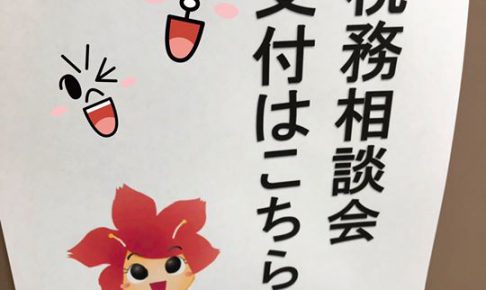 税務相談会
受付はこちら